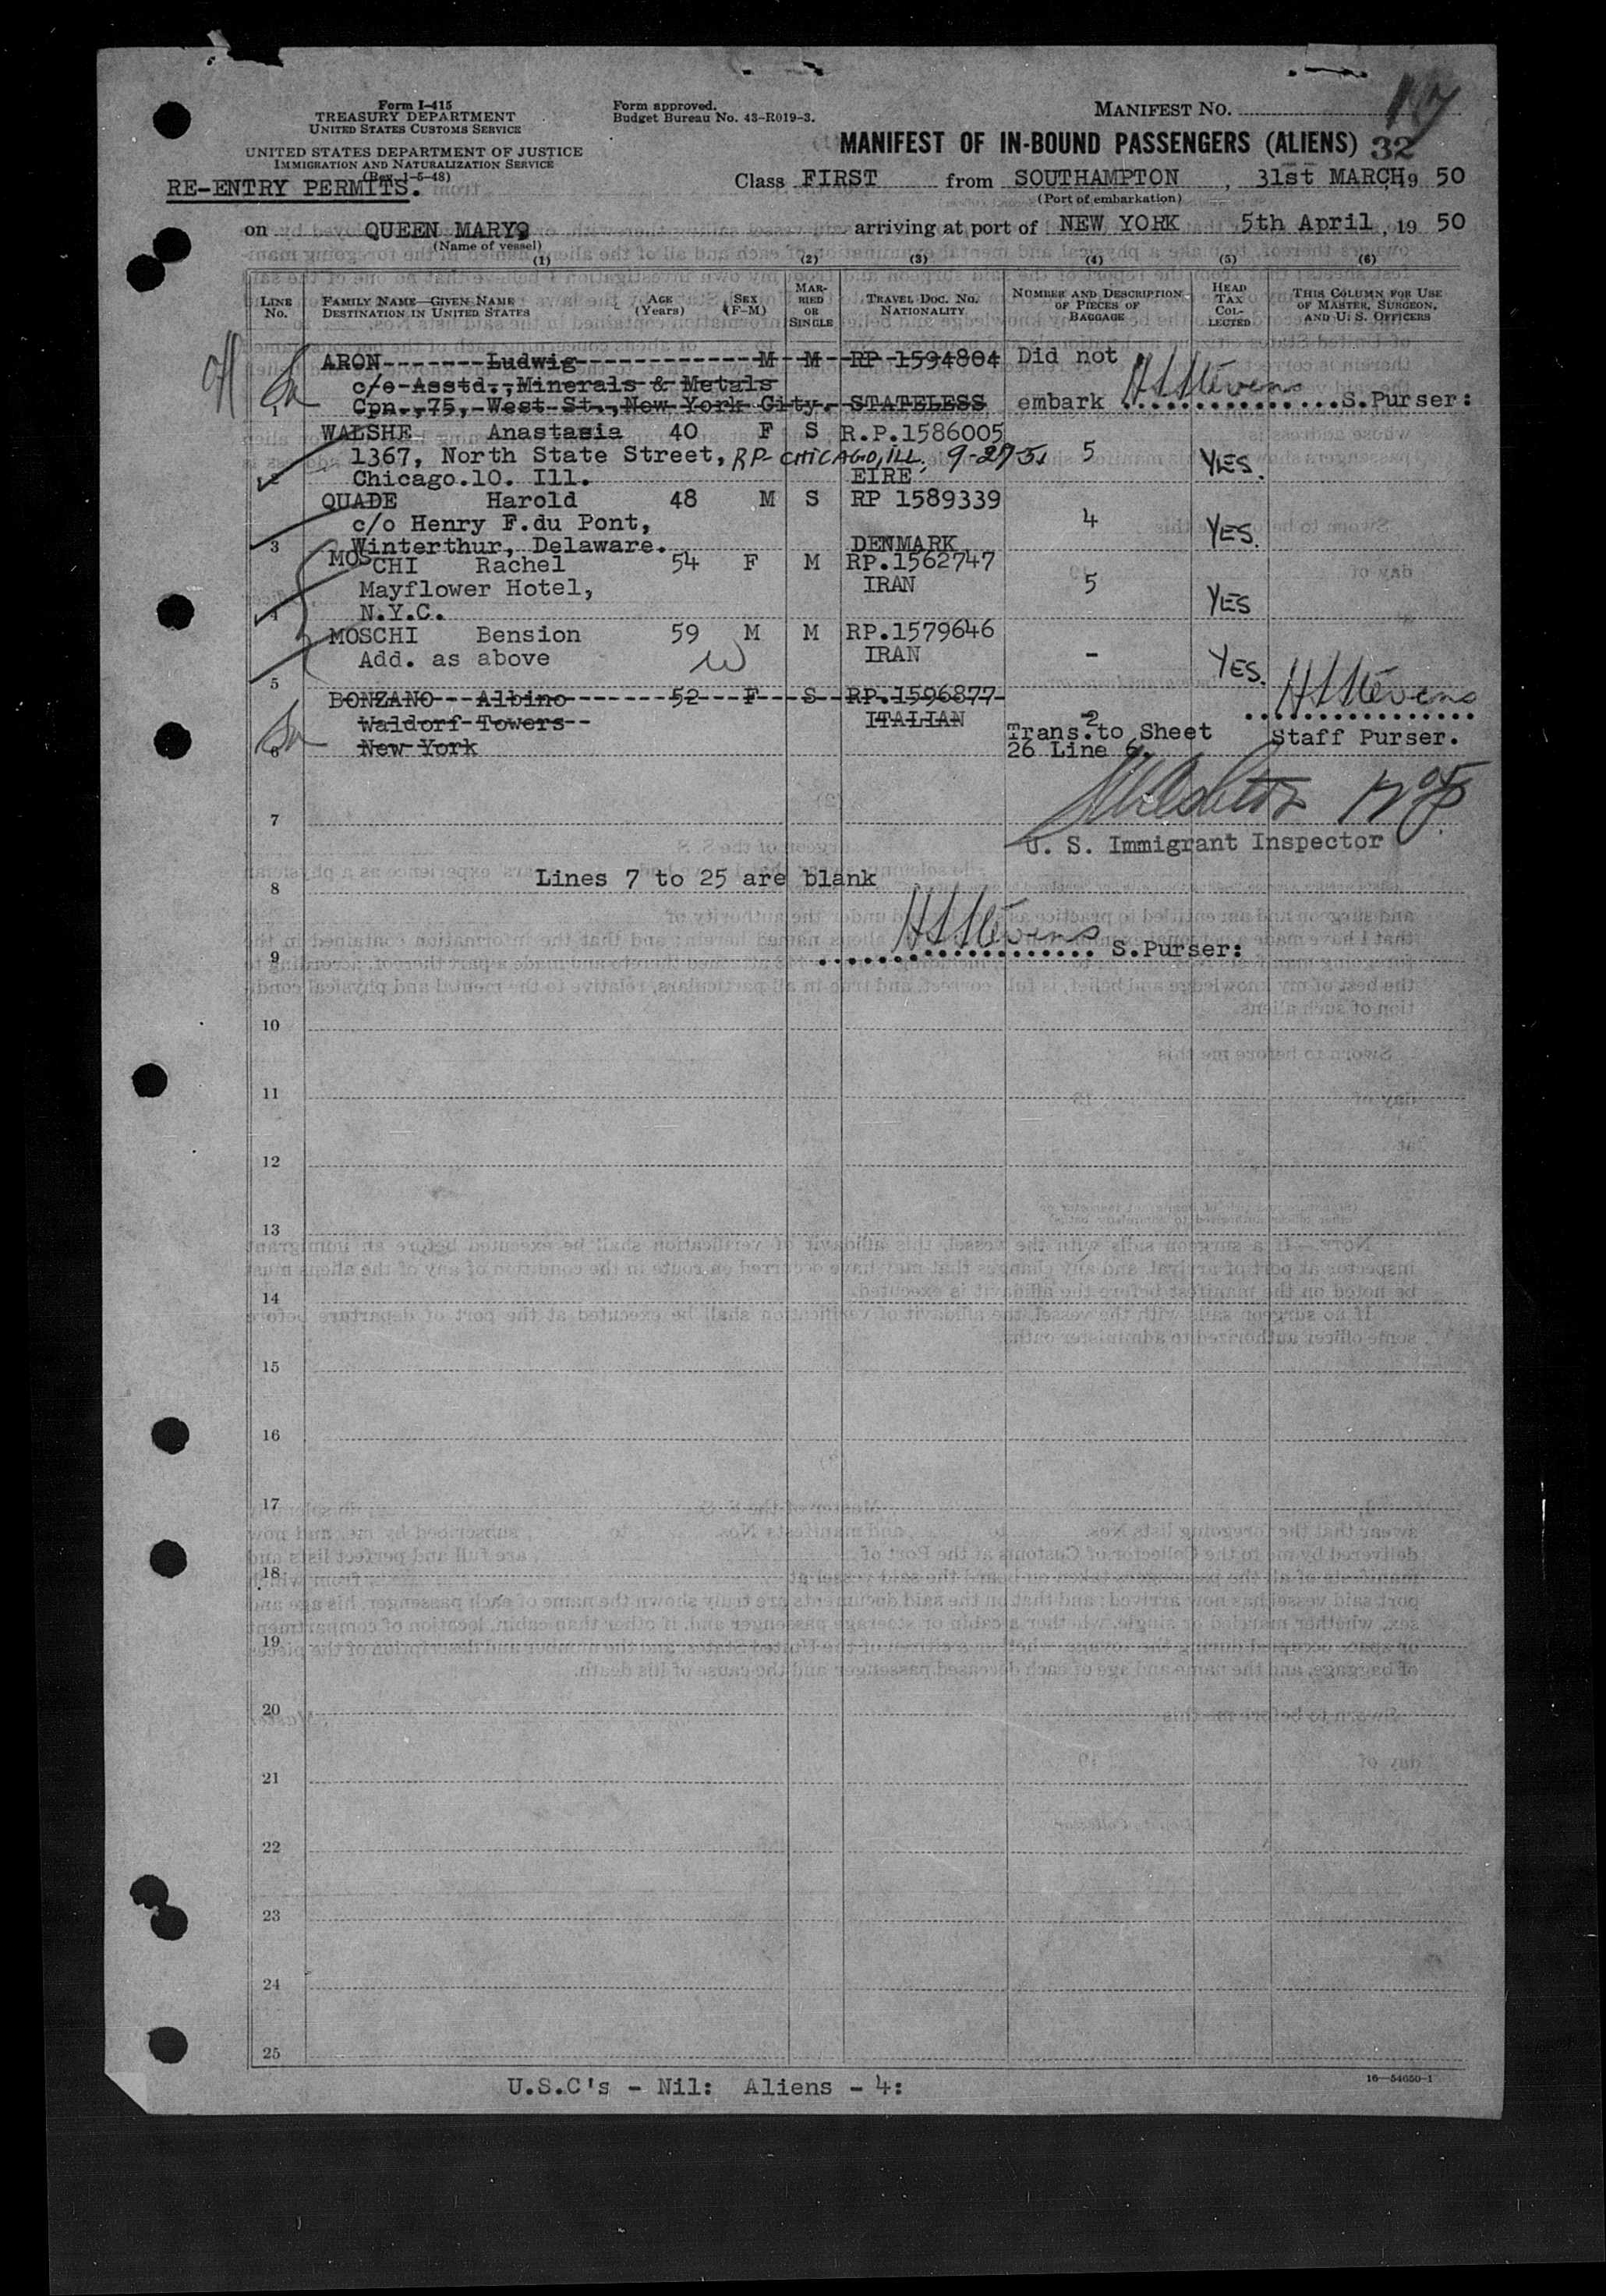 Form I-415
TREASURY DEPARTMENT
UNITED STATES CUSTOMS SERVICE
UNITED STATES DEPARTMENT OF JUSTICE
IMMIGRATION AND NATURALIZATION SERVICE
(Rev. 1-5-48)
RE-ENTRY PERMITS.
Form approved.
Budget Bureau No. 43-R019-3.
MANIFEST NO.
MANIFEST OF IN-BOUND PASSENGERS (ALIENS) 32
Class FIRST from SOUTHAMPTON, 31st MARCH, 19 50
(Port of embarkation)
on QUEEN MARY arriving at port of NEW YORK 5th April, 19 50
(Name of vessel)
(1) (2) (3) (4) (5) (6)
LINE No. FAMILY NAME—GIVEN NAME DESTINATION IN UNITED STATES AGE (Years) SEX (F-M) MARRIED OR SINGLE TRAVEL DOC. NO. NATIONALITY NUMBER AND DESCRIPTION OF PIECES OF BAGGAGE HEAD TAX COLLECTED THIS COLUMN FOR USE OF MASTER, SURGEON, AND U. S. OFFICERS
ARON Ludwig M M RP 1594804 Did not
c/o Asstd., Minerals & Metals
1 Cpn., 75, West St., New York City. STATELESS embark H S Stevens S.Purser:
WALSHE Anastasia 40 F S R.P.1586005
1367, North State Street, RP- CHICAGO, ILL. 9-27-51 5 YES.
2 Chicago.10. Ill. EIRE
QUADE Harold 48 M S RP 1589339
c/o Henry F.du Pont, 4 YES.
3 Winterthur, Delaware. DENMARK
MOSCHI Rachel 54 F M RP.1562747
Mayflower Hotel, IRAN 5 YES
4 N.Y.C.
MOSCHI Bension 59 M M RP.1579646
Add. as above W IRAN - YES.
5
BONZANO Albino 52 F S RP.1596877 H S Stevens
Waldorf Towers ITALIAN 2
6 New York Trans.to Sheet 26 Line 6. Staff Purser.
7
U. S. Immigrant Inspector
8 Lines 7 to 25 are blank
9 H S Stevens S.Purser:
10
11
12
13
14
15
16
17
18
19
20
21
22
23
24
25
U.S.C's - Nil: Aliens - 4:
16—54650-1